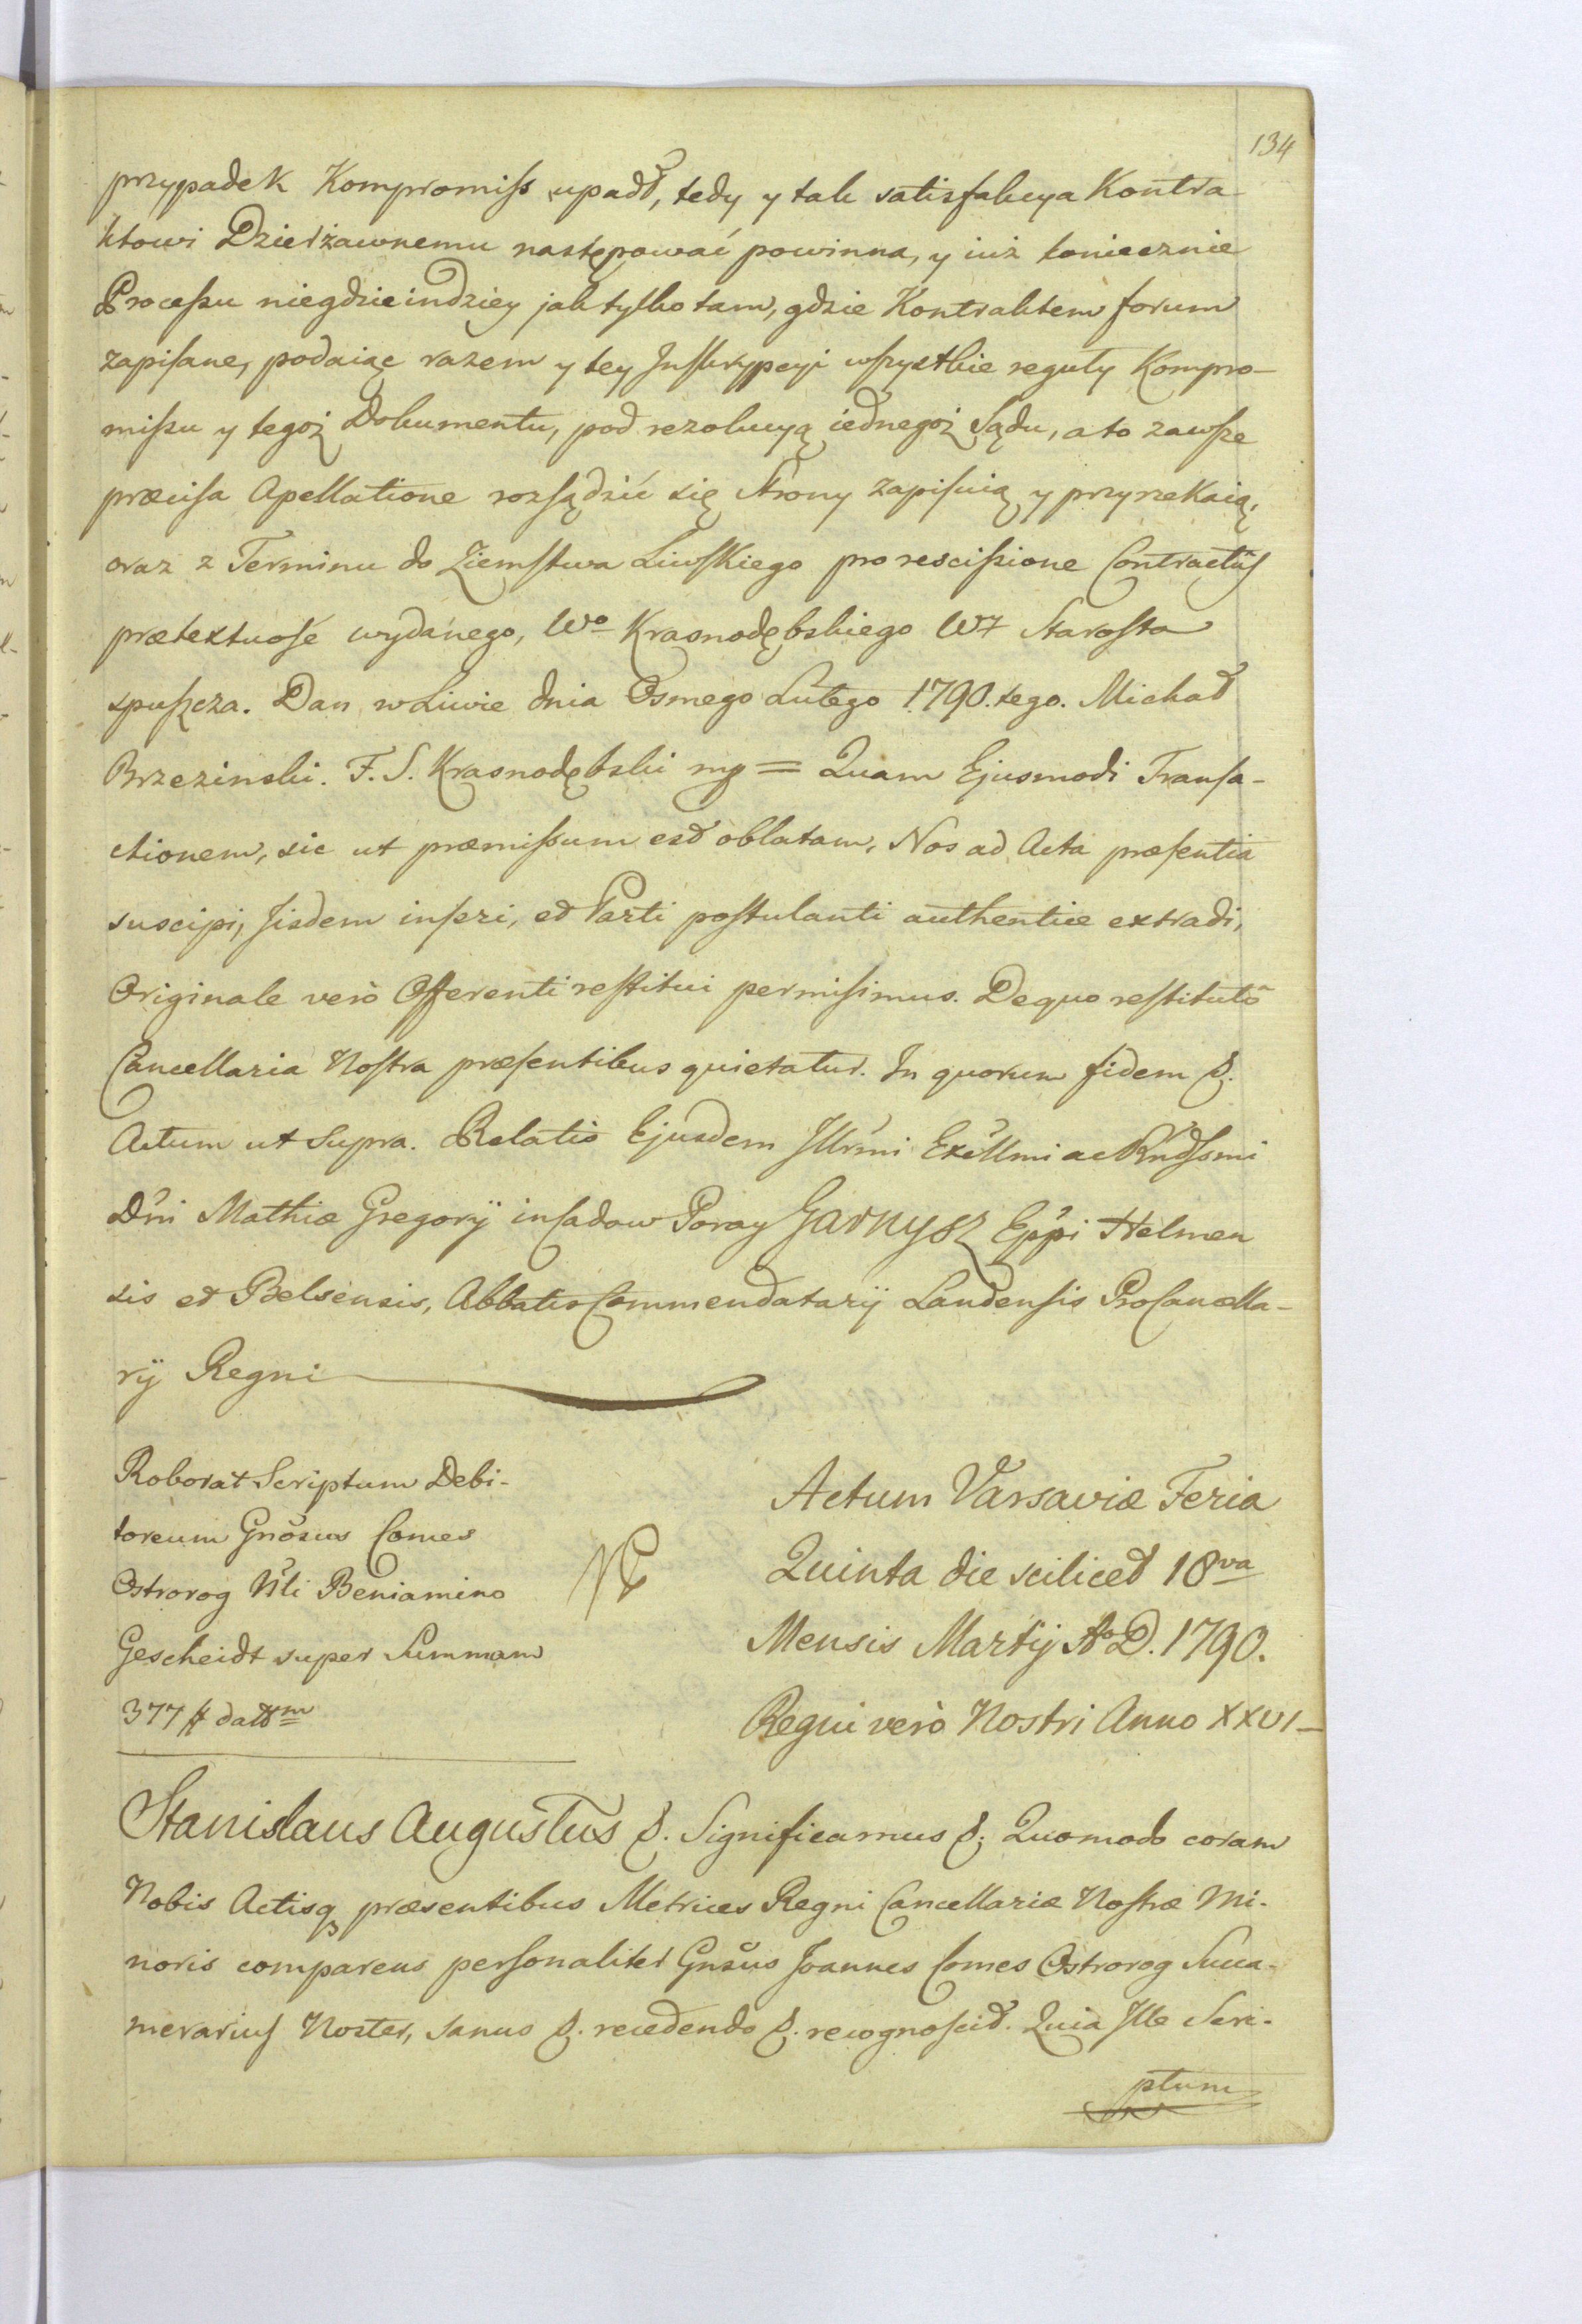 134
przypadek Kompromiss upadł, tedy y tak satisfakcya Kontra
ktowi Dzierżawnemu następować powinna, y iuż koniecznie
Processu niegdzieindziey jak tylko tam, gdzie Kontraktem forum
zapisane, podaiąc razem y tey Inskrypcyi wszystkie reguły Kompro-
missu y tegoż Dokumentu, pod rezolucyą iednegoż Sądu, a to zawsze
præcisa Apellatione rozsądzić się Strony zapisuią y przyrzekaią,
oraz z Terminu do Ziemstwa Liwskiego pro rescissione Contractûs
prætextuose wydanego, Wo Krasnodębskiego WJ Starosta
spuszcza. Dan w Liwie dnia Osmego Lutego 1790.tego. Michał
Brzezinski. F. S. Krasnodębski mp = Quam Ejusmodi Transa-
ctionem, sic ut præmissum est oblatam, Nos ad Acta præsentia
suscipi, Jisdem inseri, et Parti postulanti authentice extradi,
Originale verò Offerenti restitui permisimus. De quo restitutô
Cancellaria Nostra præsentibus quietatur. In quorum fidem &.
Actum ut Supra. Relatio Ejusdem Illrmi Excllmi ac Rndssmi
Dni Mathiæ Gregorij in Cadow Poray Garnysz Eppi Helmen
sis et Belsensis, Abbatis Commendatarij Landensis ProCancella-
rij Regni
Roborat Scriptum Debi-
toreum Gnosus Comes
Ostrorog Nli Beniamino
Gescheidt super Summam
377 # datt m
Actum Varsaviæ Feria
Quinta die scilicet 18va
Mensis Martij Ao D. 1790.
Regni verò Nostri Anno XXVI
Stanislaus Augustus &. Significamus &. Quomodo coram
Nobis Actisq præsentibus Metrices Regni Cancellariæ Nostræ Mi-
noris comparens personaliter Gnsus Joannes Comes Ostrorog Succa-
merarius Noster, sanus &. recedendo &. recognoscit. Quia Ille Scri-
ptum